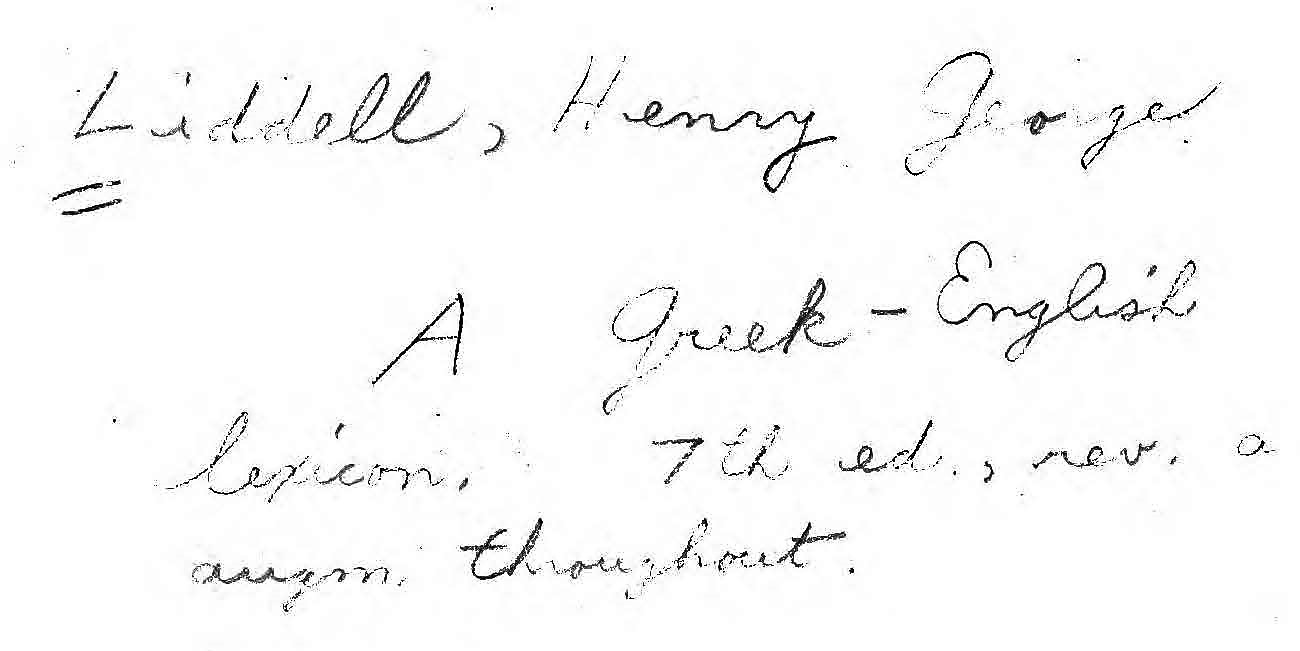 Liddell, Henry George
A Greek-English
lexicon. 7th ed., rev. a
augm. throughout.